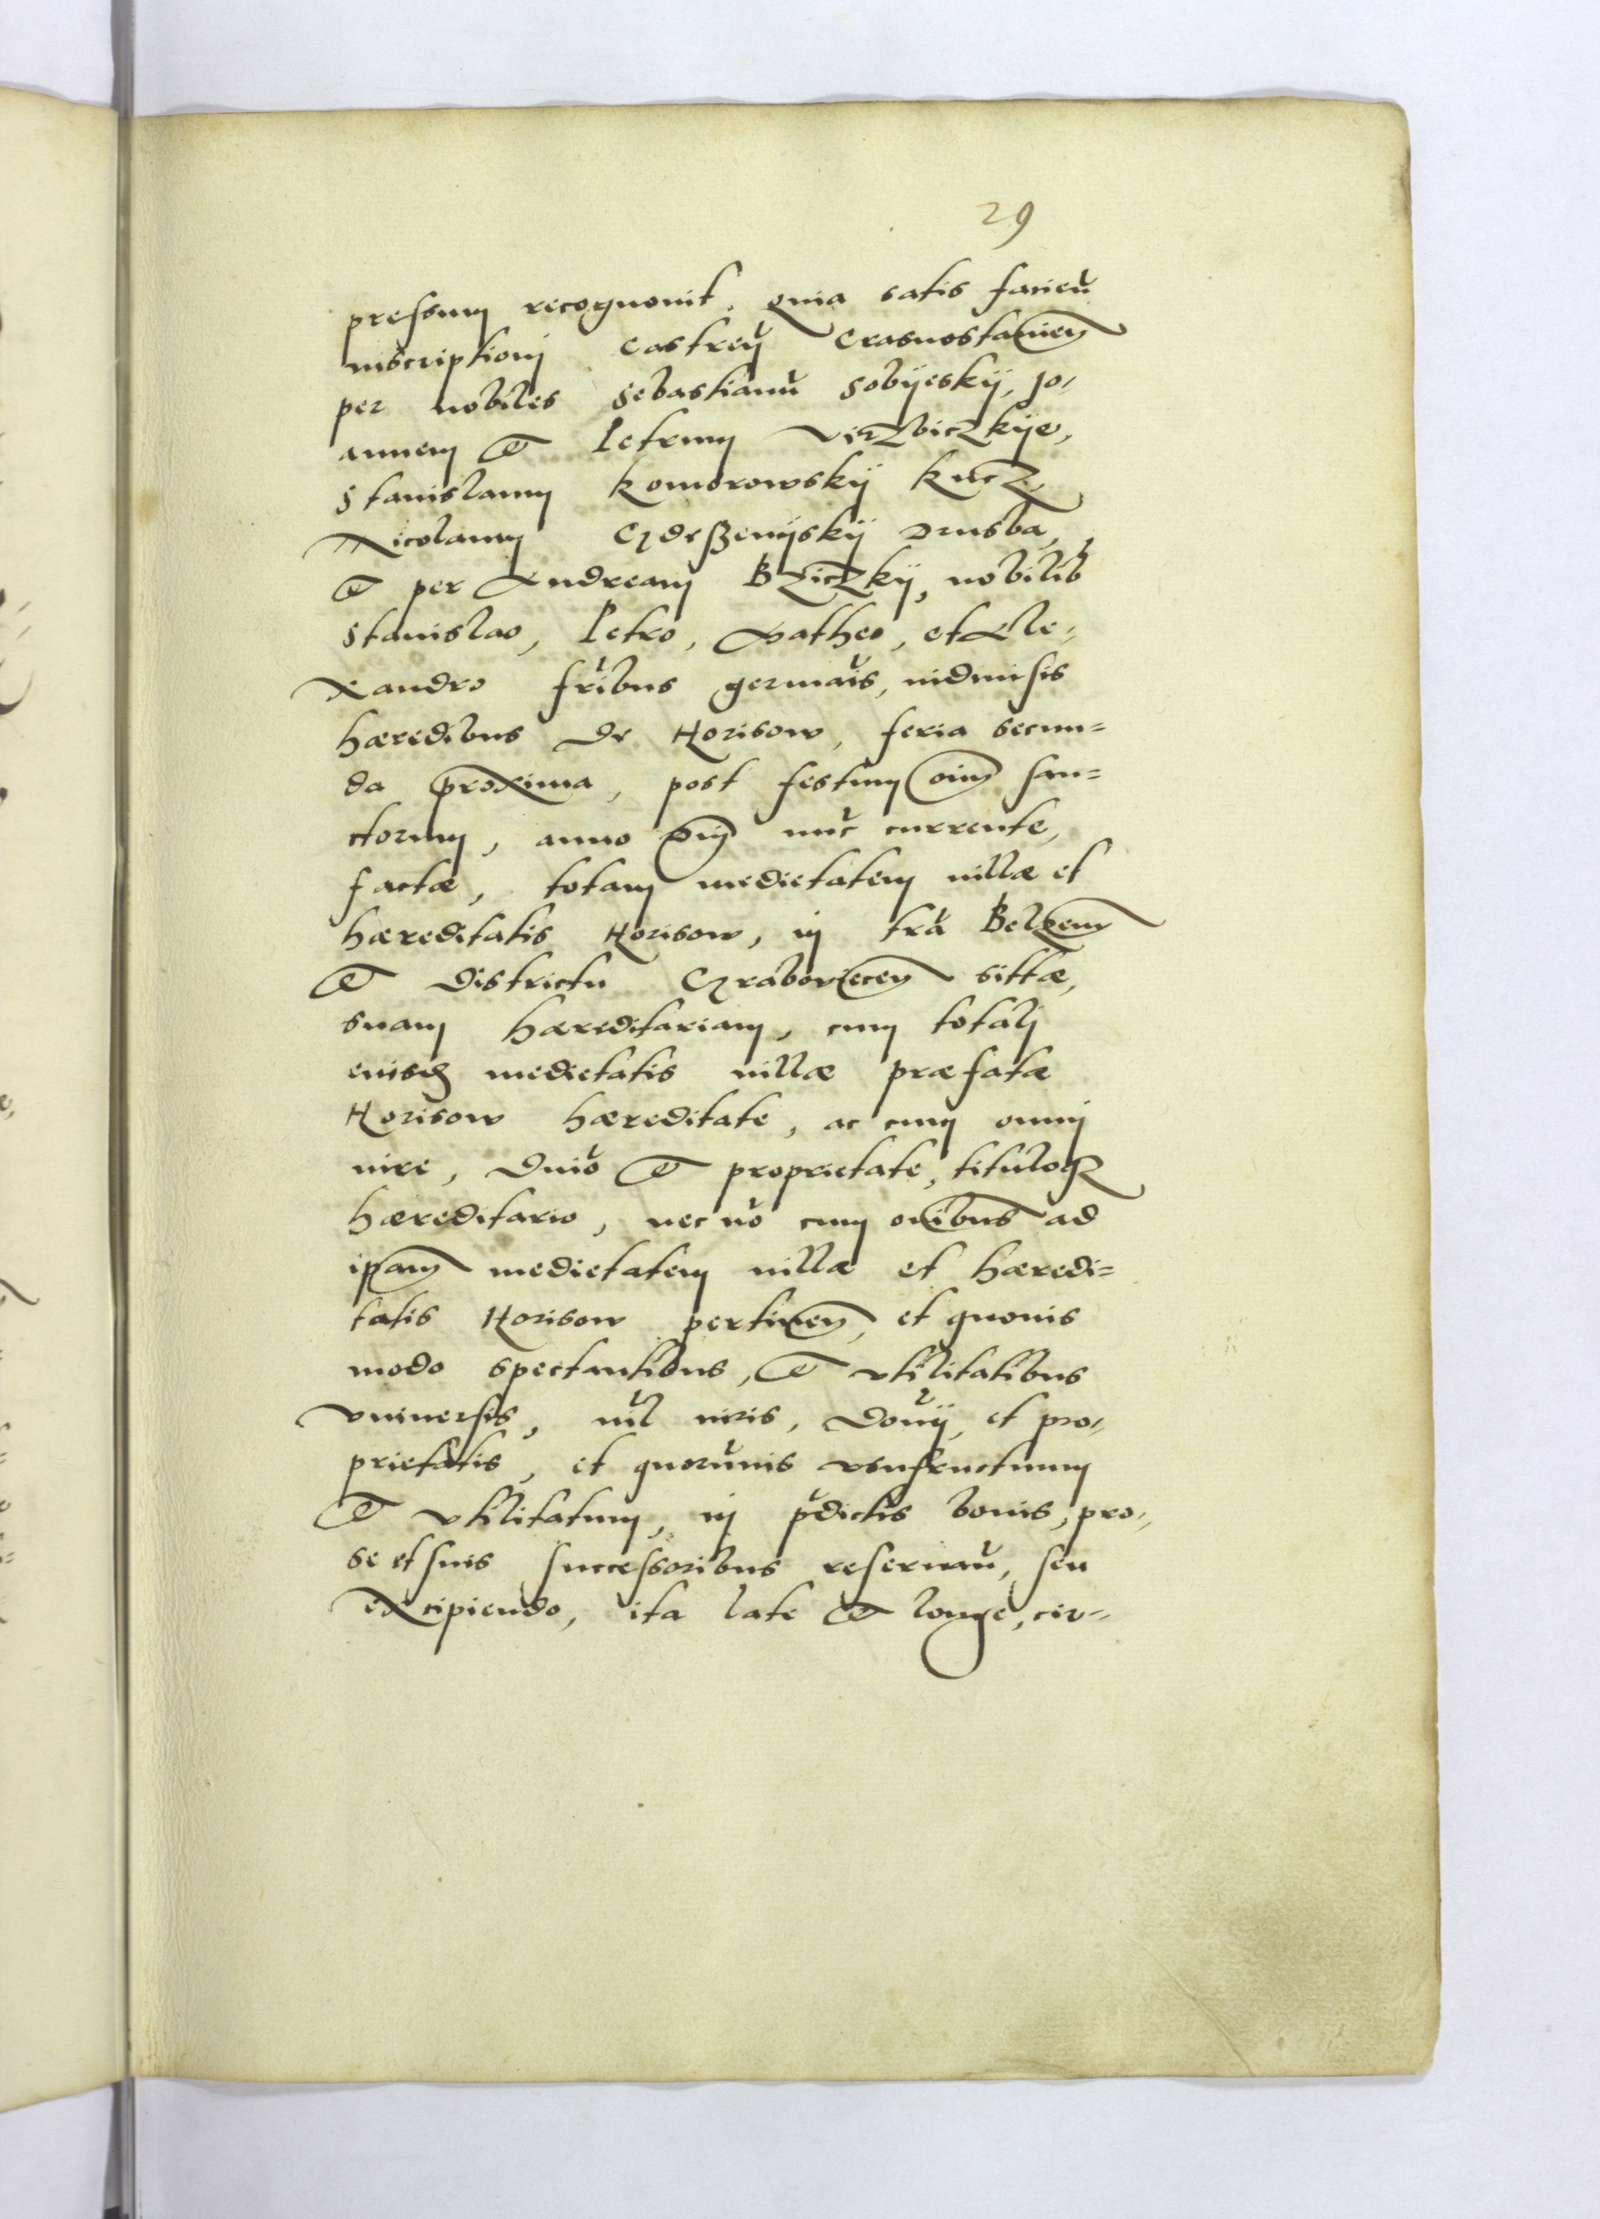 29
pressum recognouit. Quia satis facieñ
inscriptioni Castreñ Crasnostamieñ
per nobiles Sebastianũ Sobÿeskÿ, Jo-
annem et Petrum VirzbiczkiJe,
Stanislaum Komorowskÿ Kucz
Nicolaum Drusba,
et per Andream Bziczkÿ, nobilib
Stanislao, Petro, Matheo, et Ale-
xandro fribus germais, indiuisis
hæredibus de Horisow, feria secun-
da proxima, post festum oim san-
ctorum, anno Dni nũc currente,
factæ, totam medietatem uillæ et
hæreditatis Horisow, in tra Belzeñ
et districtu Grabouieceñ sittæ,
suam hæreditariam, cum totali
eiusdem medietatis uillæ præfatæ
Horisow hæreditate, ac cum omni
iure, Dnio et proprietate, tituloq
hæreditario, nec nõ cum oibus ad
ipam medietatem uillæ et hæredi-
tatis Horisow pertineñ, et quouis
modo spectantibus, et vtilitatibus
vniuersis, nil iuris, Donij, et pro-
prietatis, et quorũuis vsufructuum
et vtilitatum, in pdictis bonis, pro-
se et suis successoribus reseruañ, seu
excipiendo, ita late et longe, cir-